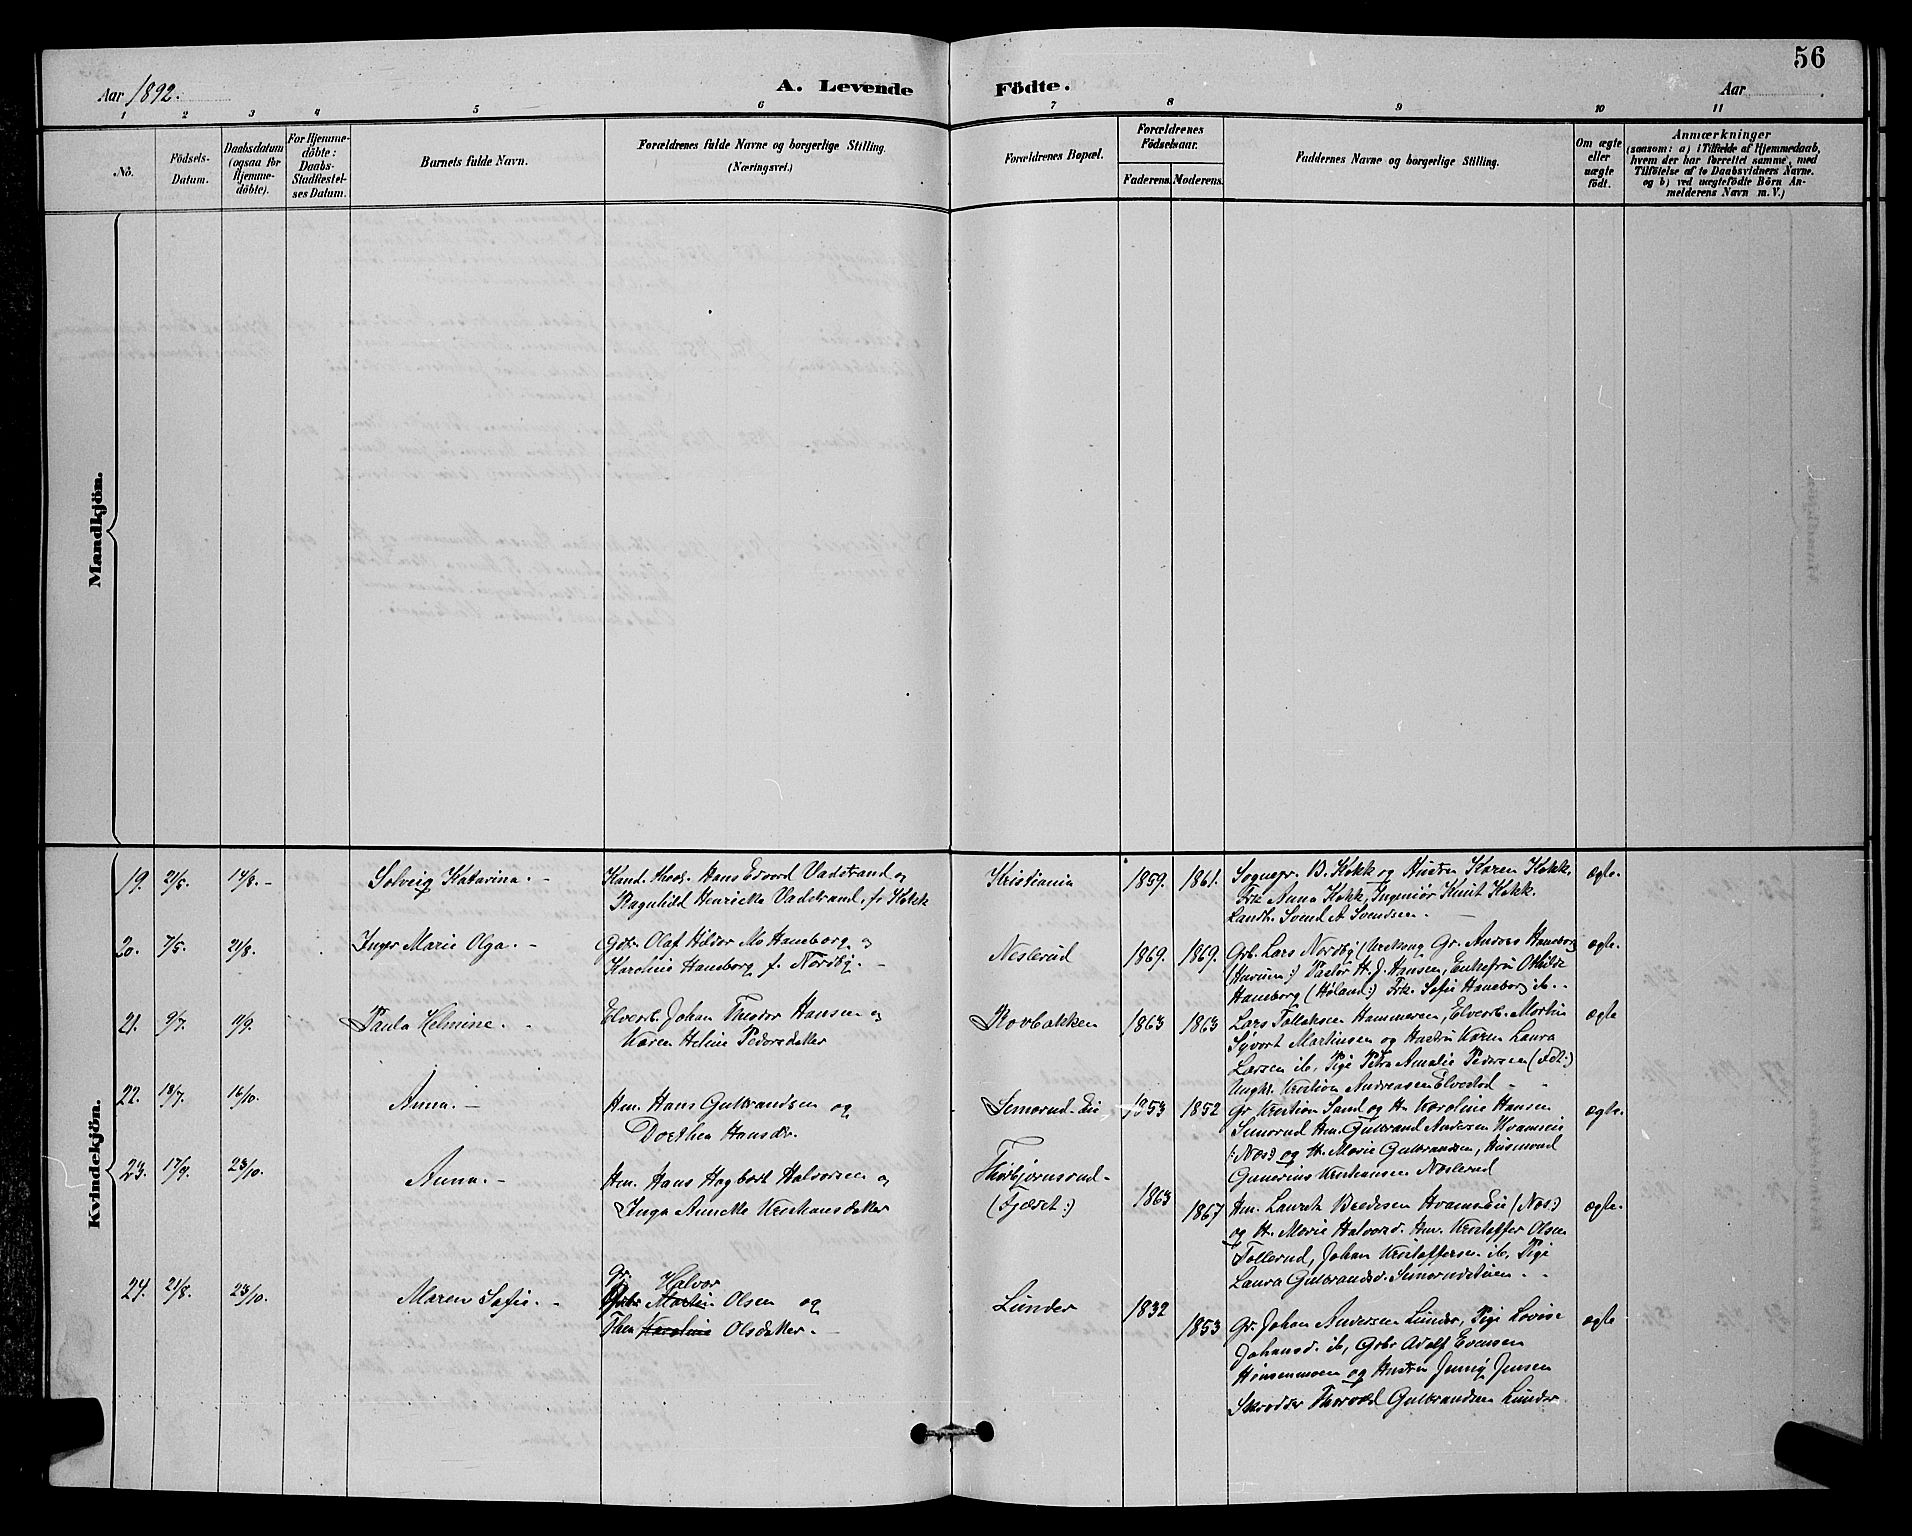 56
Aar 1892.
A. Levende Födte.
Aar
1 2 3 4 5 6 7 8 9 10 11
No.
Födsels-
Datum.
Daabsdatum
(ogsaa for
Hjemme-
döbte).
For Hjemme-
döbte:
Daabs-
Stadfæstel-
ses Datum.
Barnets fulde Navn.
Forældrenes fulde Navne og borgerlige Stilling.
(Næringsvei.)
Forældrenes Bopæl.
Forældrenes
Födselsaar.
Faderens. Moderens.
Faddernes Navne og borgerlige Stilling.
Om ægte
eller
uægte
födt.
Anmærkninger
(saasom: a) i Tilfælde af Hjemmedaab,
hvem der har forrettet samme, med
Tilföielse af to Daabsvidners Navne.
og b) ved uægtefödte Börn An-
melderens Navn m. V.)
Mandkjön.
Kvindekjön.
19. 21/6. 14/8. - Solveig Katarina. -
Kand. theol. Hans Edvard Vadstrand og
Ragnhild Henrikke Vadstrand, f. Kokk
Kristiania 1859. 1861.
Sognepr. B. Kokk og Hustru Karen Kokk,
Frk Anna Kokk, Ingeniør Knut Kokk.
Landh. Svend A Svendsen. -
ægte.
20. 7/5. 21/8. Inger Marie Olga. -
Gbr. Olaf Hildor Mo Haneborg og
Karoline Haneborg f. Nordby. -
Neslerud 1869. 1869.
Grb. Lars Nordby (Urskoug Gr. Anders Haneborg
(Hurum:) Pastor H. J. Hansen, Enkefru Othilde
Haneborg (Høland:) Frk. Sofie Haneborg ib. -
ægte.
21. 9/7. 11/9. Paula Helmine. -
Elverb. Johan Theodor Hansen og
Karen Heline Pedersdatter
Rovbakken 1863 1863
Lars Tollefsen Hammeren, Elverb. Martin
Syvert Martinsen og Hustru Karen Laura
Larsen ib. Pige Petra Amalie Pedersen
Ungk. Kristian Andreasen Elvestad - -
ægte
22. 18/7. 16/10. Anna. -
Hm. Hans Gulbrandsen og
Dorthea Hansdr.
Semorud-Eie 1853 1852
Gr. Kristian Sand og H. Karoline Hansen
Simorud Hm. Gulbrand Andersen Hvamseie
(Næs) og H. Marie Gulbrandsen, Husmand
Gunerius Kristiansen Neslerud
ægte.
23. 17/9. 23/10. Anna. -
Hm. Hans Hagbart Halvorsen og
Inga Annette Kristiansdatter
Thorbjørnsrud-
(Fjæret:)
1863 1867
Hm. Laurits Bredesen Hvamseie (Næs)
og H. Marie Halvorsd. Hm. Kristoffer Olsen
Tollerud, Johan Kristoffersen ib. Pige
Laura Gulbrandsd. Simorudstuen. -
ægte.
24. 21/8. 23/10. Maren Sofie. -
Gr. Halvor
Martin Olsen og
Thea Karoline Olsdatter. -
Lunder 1832 1853
Gr. Johan Andersen Lunder, Pige Lovise
Johansd. ib, Grbr Adolf Evensen
Hønsenmoen og Hustru Jenny Jensen
Skrædder Thorvald Gulbrandsen Lunder.
ægte